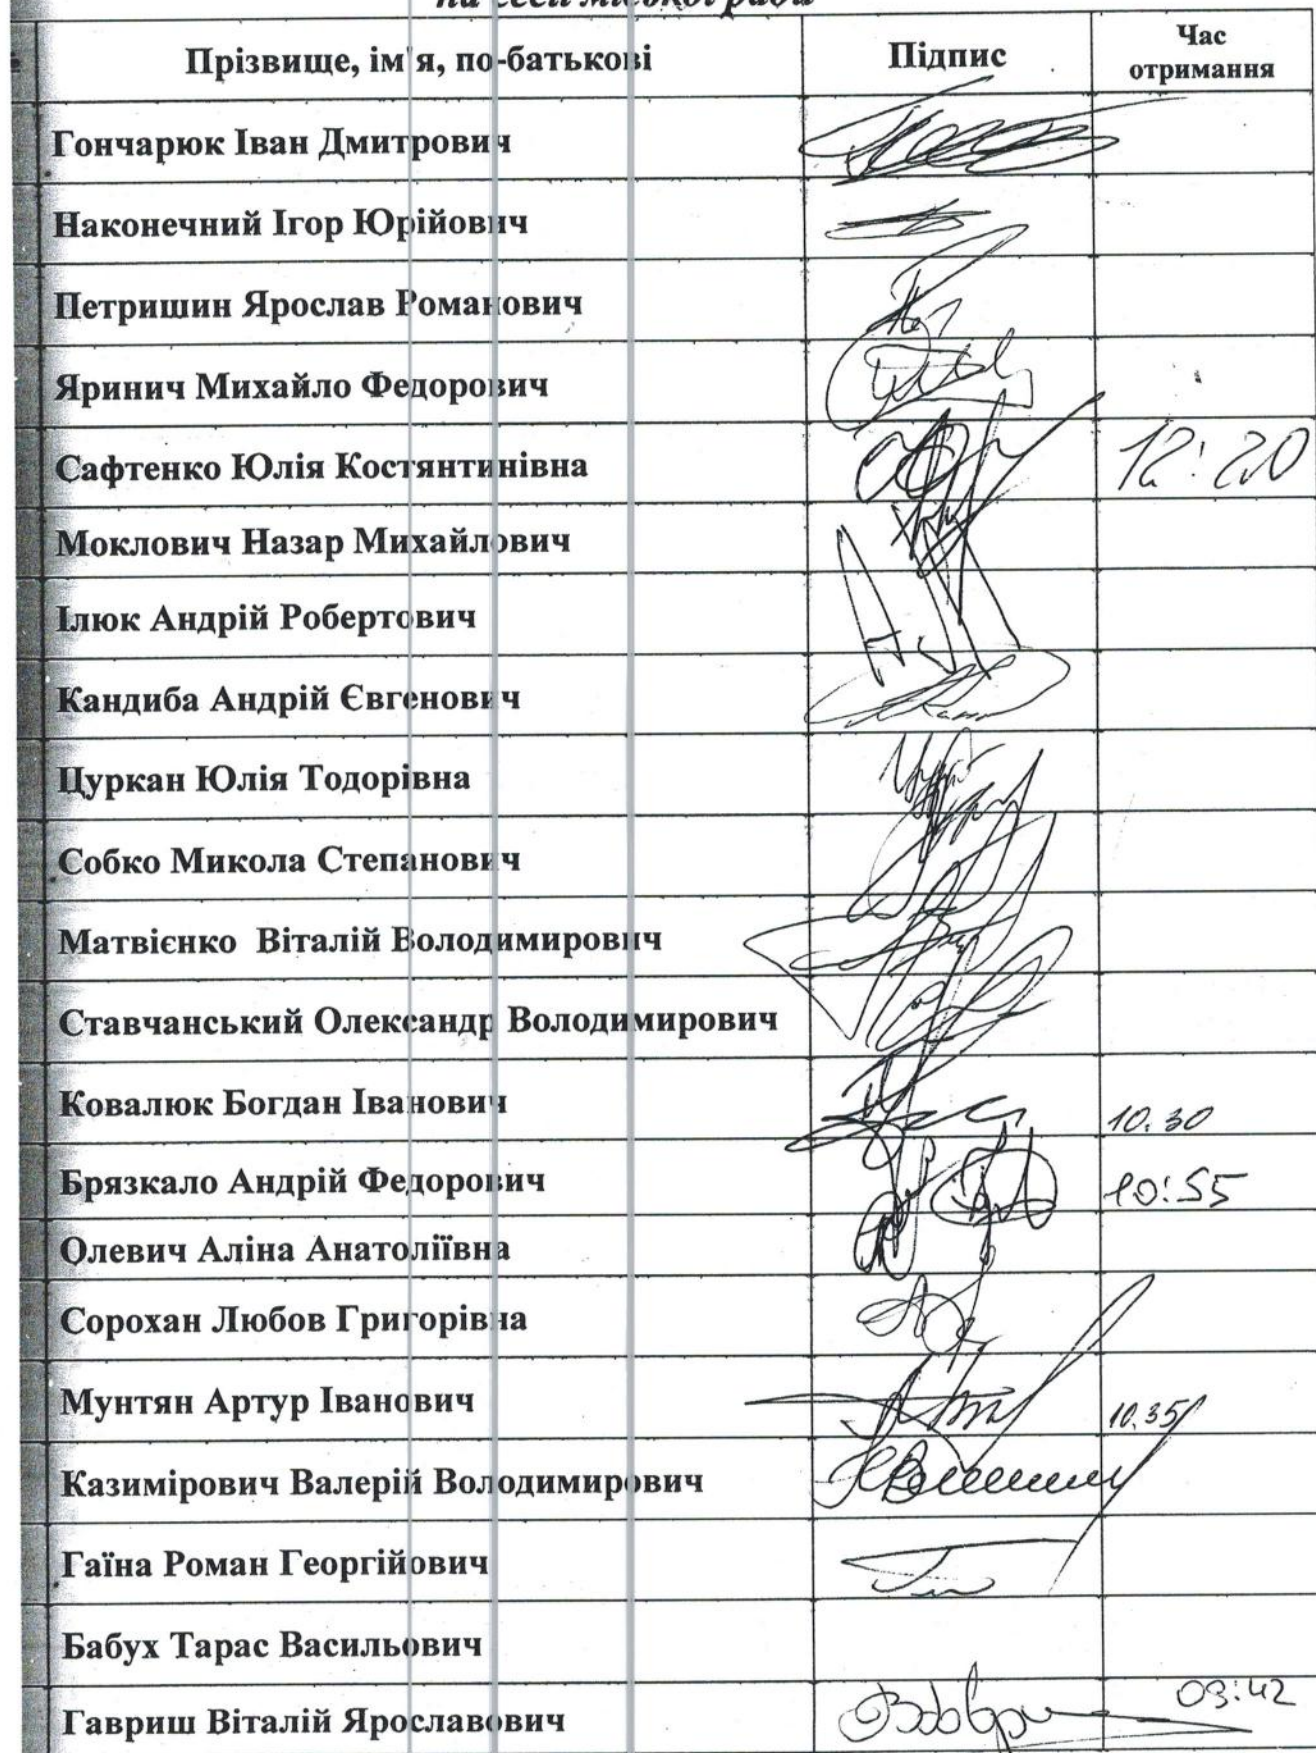 на сесії міської ради
Прізвище, ім'я, по-батькові Підпис Час
отримання
Гончарюк Іван Дмитрович
Наконечний Ігор Юрійович
Петришин Ярослав Романович
Яринич Михайло Федорович
Сафтенко Юлія Костянтинівна 12:20
Моклович Назар Михайлович
Ілюк Андрій Робертович
Кандиба Андрій Євгенович
Цуркан Юлія Тодорівна
Собко Микола Степанович
Матвієнко Віталій Володимирович
Ставчанський Олександр Володимирович
Ковалюк Богдан Іванович 10.30
Брязкало Андрій Федорович 10:55
Олевич Аліна Анатоліївна
Сорохан Любов Григорівна
Мунтян Артур Іванович 10.35
Казимірович Валерій Володимирович
Гаїна Роман Георгійович
Бабух Тарас Васильович
Гавриш Віталій Ярославович 09:42